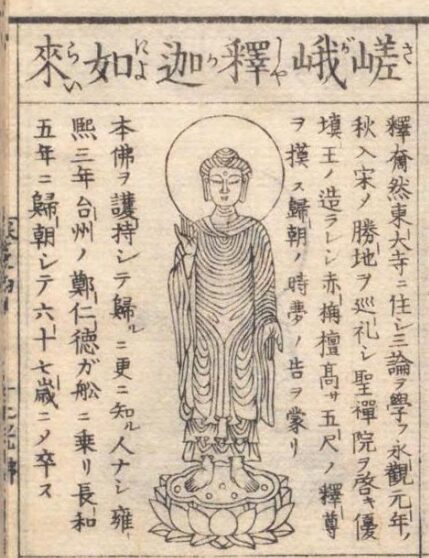 嵯峨釋迦如來
さがしやかによらい
釋奝然東大寺ニ住シ三論ヲ學フ永觀元年ノ
秋入宋ノ勝地ヲ巡礼シ聖禪院ヲ啓キ優
塡王ノ造ラレシ赤栴檀高サ五尺ノ釋尊
ヲ摸ス歸朝ノ時夢ノ告ヲ蒙リ
本佛ヲ護持シテ歸ル更ニ知ル人ナシ雍
熙三年台州ノ鄭仁德ガ舩ニ乗リ長和
五年ニ歸朝シテ六十七歳ニノ卒ス